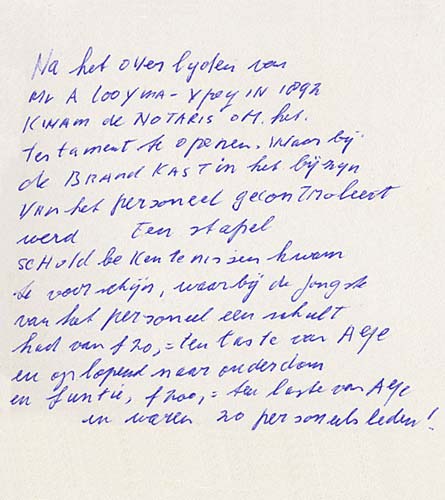 Na het over lyden van
Mr A Looyma - Ypey IN 1892
KWAM de NOTARIS OM het
testament te openen. Waar bij
de BRANdKAST in het bijzyn
VAN het personeel gecontroleert
werd Een stapel
SCHuldbekentenissen kwam
te voorschijn, waarbij de jongste
van het personeel een schult
had van f 20,= ten laste van
en oplopend naar ouderdom
en funtie, f 200,= ten laste van
en waren 20 personeelsleden!